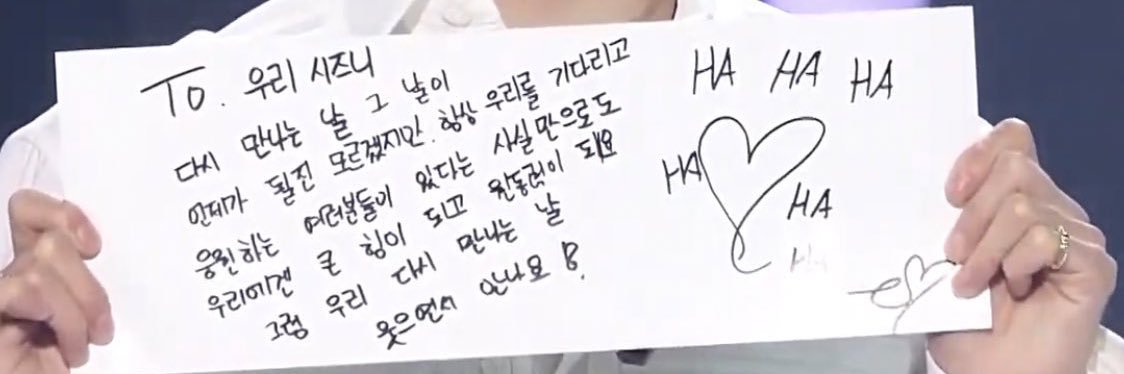 To. 우리 시즈니
다시 만나는 날 그 날이
언제가 될진 모르겠지만. 항상 우리를 기다리고
응원하는 여러분들이 있다는 사실만으로도
우리에겐 큰 힘이 되고 원동력이 돼요
그럼 우리 다시 만나는 날
웃으면서 만나요
HA HA HA
HA
HA